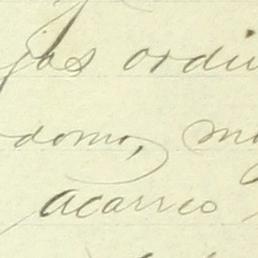 jas ordi
domo, m
acarreo